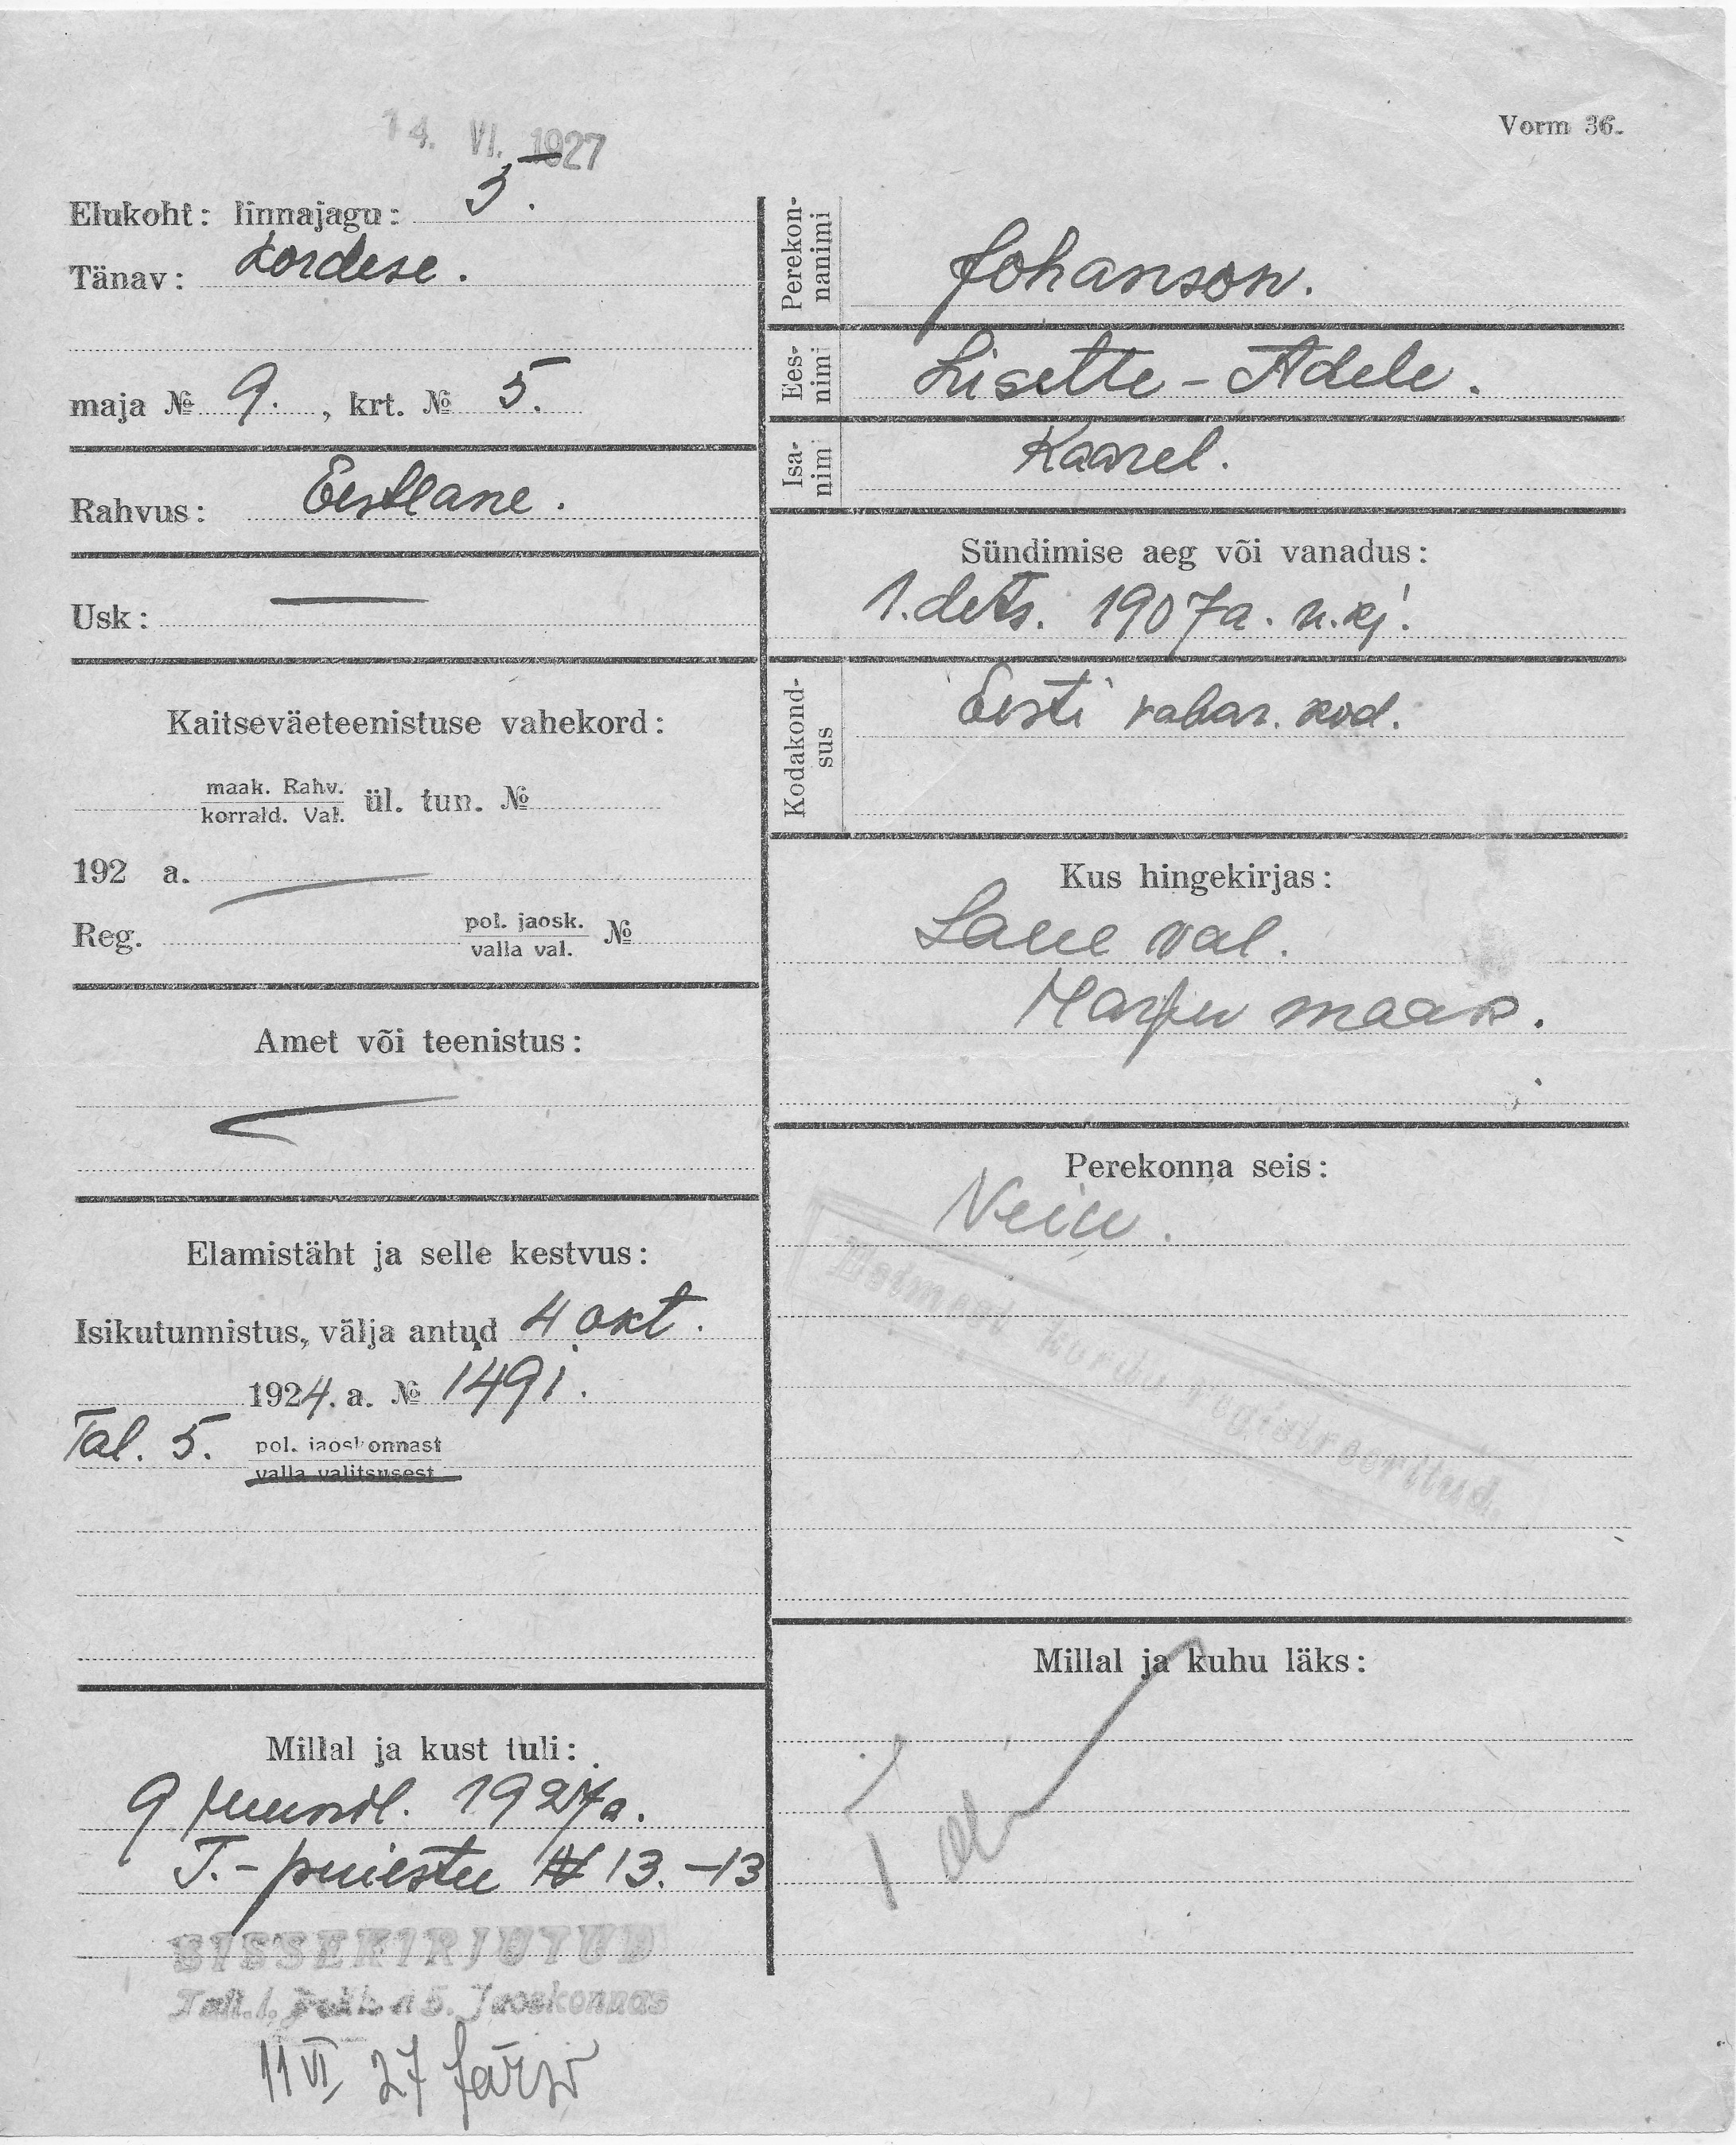 14. VI. 1927
Vorm 36.
Elukoht: linnajagu: 5.
Tänav: Kordese.
maja № 9., krt. № 5.
Rahvus: Eestlane.
Usk: —
Kaitseväeteenistuse vahekord:
maak. Rahv.
korrald. Val. ül. tun. №
192 a.
Reg. pol. jaosk.
valla val. №
Amet või teenistus:
Elamistäht ja selle kestvus:
Isikutunnistus, välja antud 4 okt.
1924. a. № 1491.
Tal. 5. pol. jaoskonnast
valla valitsusest
Millal ja kust tuli:
9 juunil. 1927a.
T.-puiestee № 13.-13
SISSEKIRJUTUD
Tall. 5. Jaoskonnas
11 VI 27
Perekon-
nanimi Johanson.
Ees-
nimi Lisette-Adele.
Isa-
nimi Kaarel.
Sündimise aeg või vanadus:
1. dets. 1907a. u.kj.
Kodakond-
sus Eesti vabar. kod.
Kus hingekirjas:
Laue val.
Harju maak.
Perekonna seis:
Neiu.
Esimest korda registreeritud.
Millal ja kuhu läks: